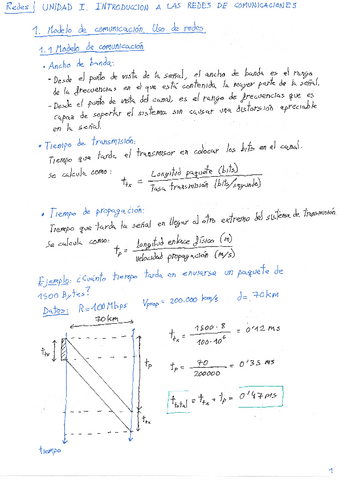 Redes | UNIDAD I. INTRODUCCION A LAS REDES DE COMUNICACIONES
1. Modelo de comunicación. Uso de redes
1.1 Modelo de comunicación
• Ancho de banda:
- Desde el punto de vista de la señal, el ancho de banda es el rango
de la frecuencias en el que está contenida la mayor parte de la señal.
- Desde el punto de vista del canal, es el rango de frecuencias que es
capaz de soportar el sistema sin causar una distorsión apreciable
en la señal.
• Tiempo de transmisión:
Tiempo que tarda el transmisor en colocar los bits en el canal.
Se calcula como: t_tx = Longitud paquete (bits) / Tasa transmisión (bits/segundo)
• Tiempo de propagación:
Tiempo que tarda la señal en llegar al otro extremo del sistema de transmisión
Se calcula como: t_p = Longitud enlace físico (m) / velocidad propagación (m/s)
Ejemplo: ¿Cuánto tiempo tarda en enviarse un paquete de
1500 Bytes?
Datos: R = 100 Mbps V_prop = 200.000 km/s d = 70 km
70 km
t_tx
t_p
t_tx
tiempo
t_tx = 1500 · 8 / 100·10^6 = 0'12 ms
t_p = 70 / 200000 = 0'35 ms
t_total = t_tx + t_p = 0'47 ms
1